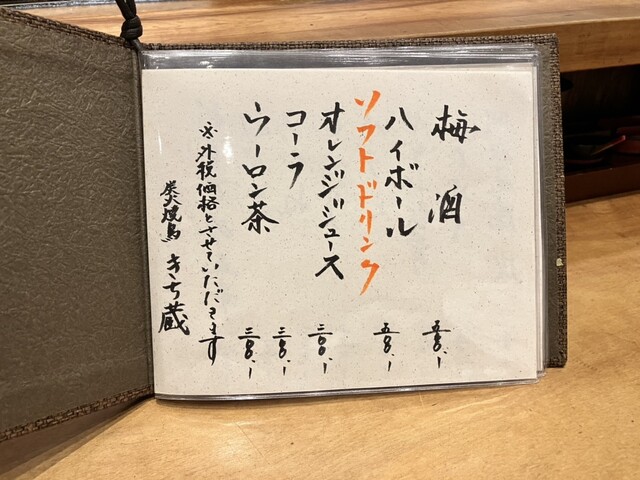 梅酒 五〇〇、ー
ハイボール 五〇〇、ー
ソフトドリンク
オレンジジュース 三〇〇、ー
コーラ 三〇〇、ー
ウーロン茶 三〇〇、ー
※外税価格とさせていただきます
炭火焼鳥 きち蔵